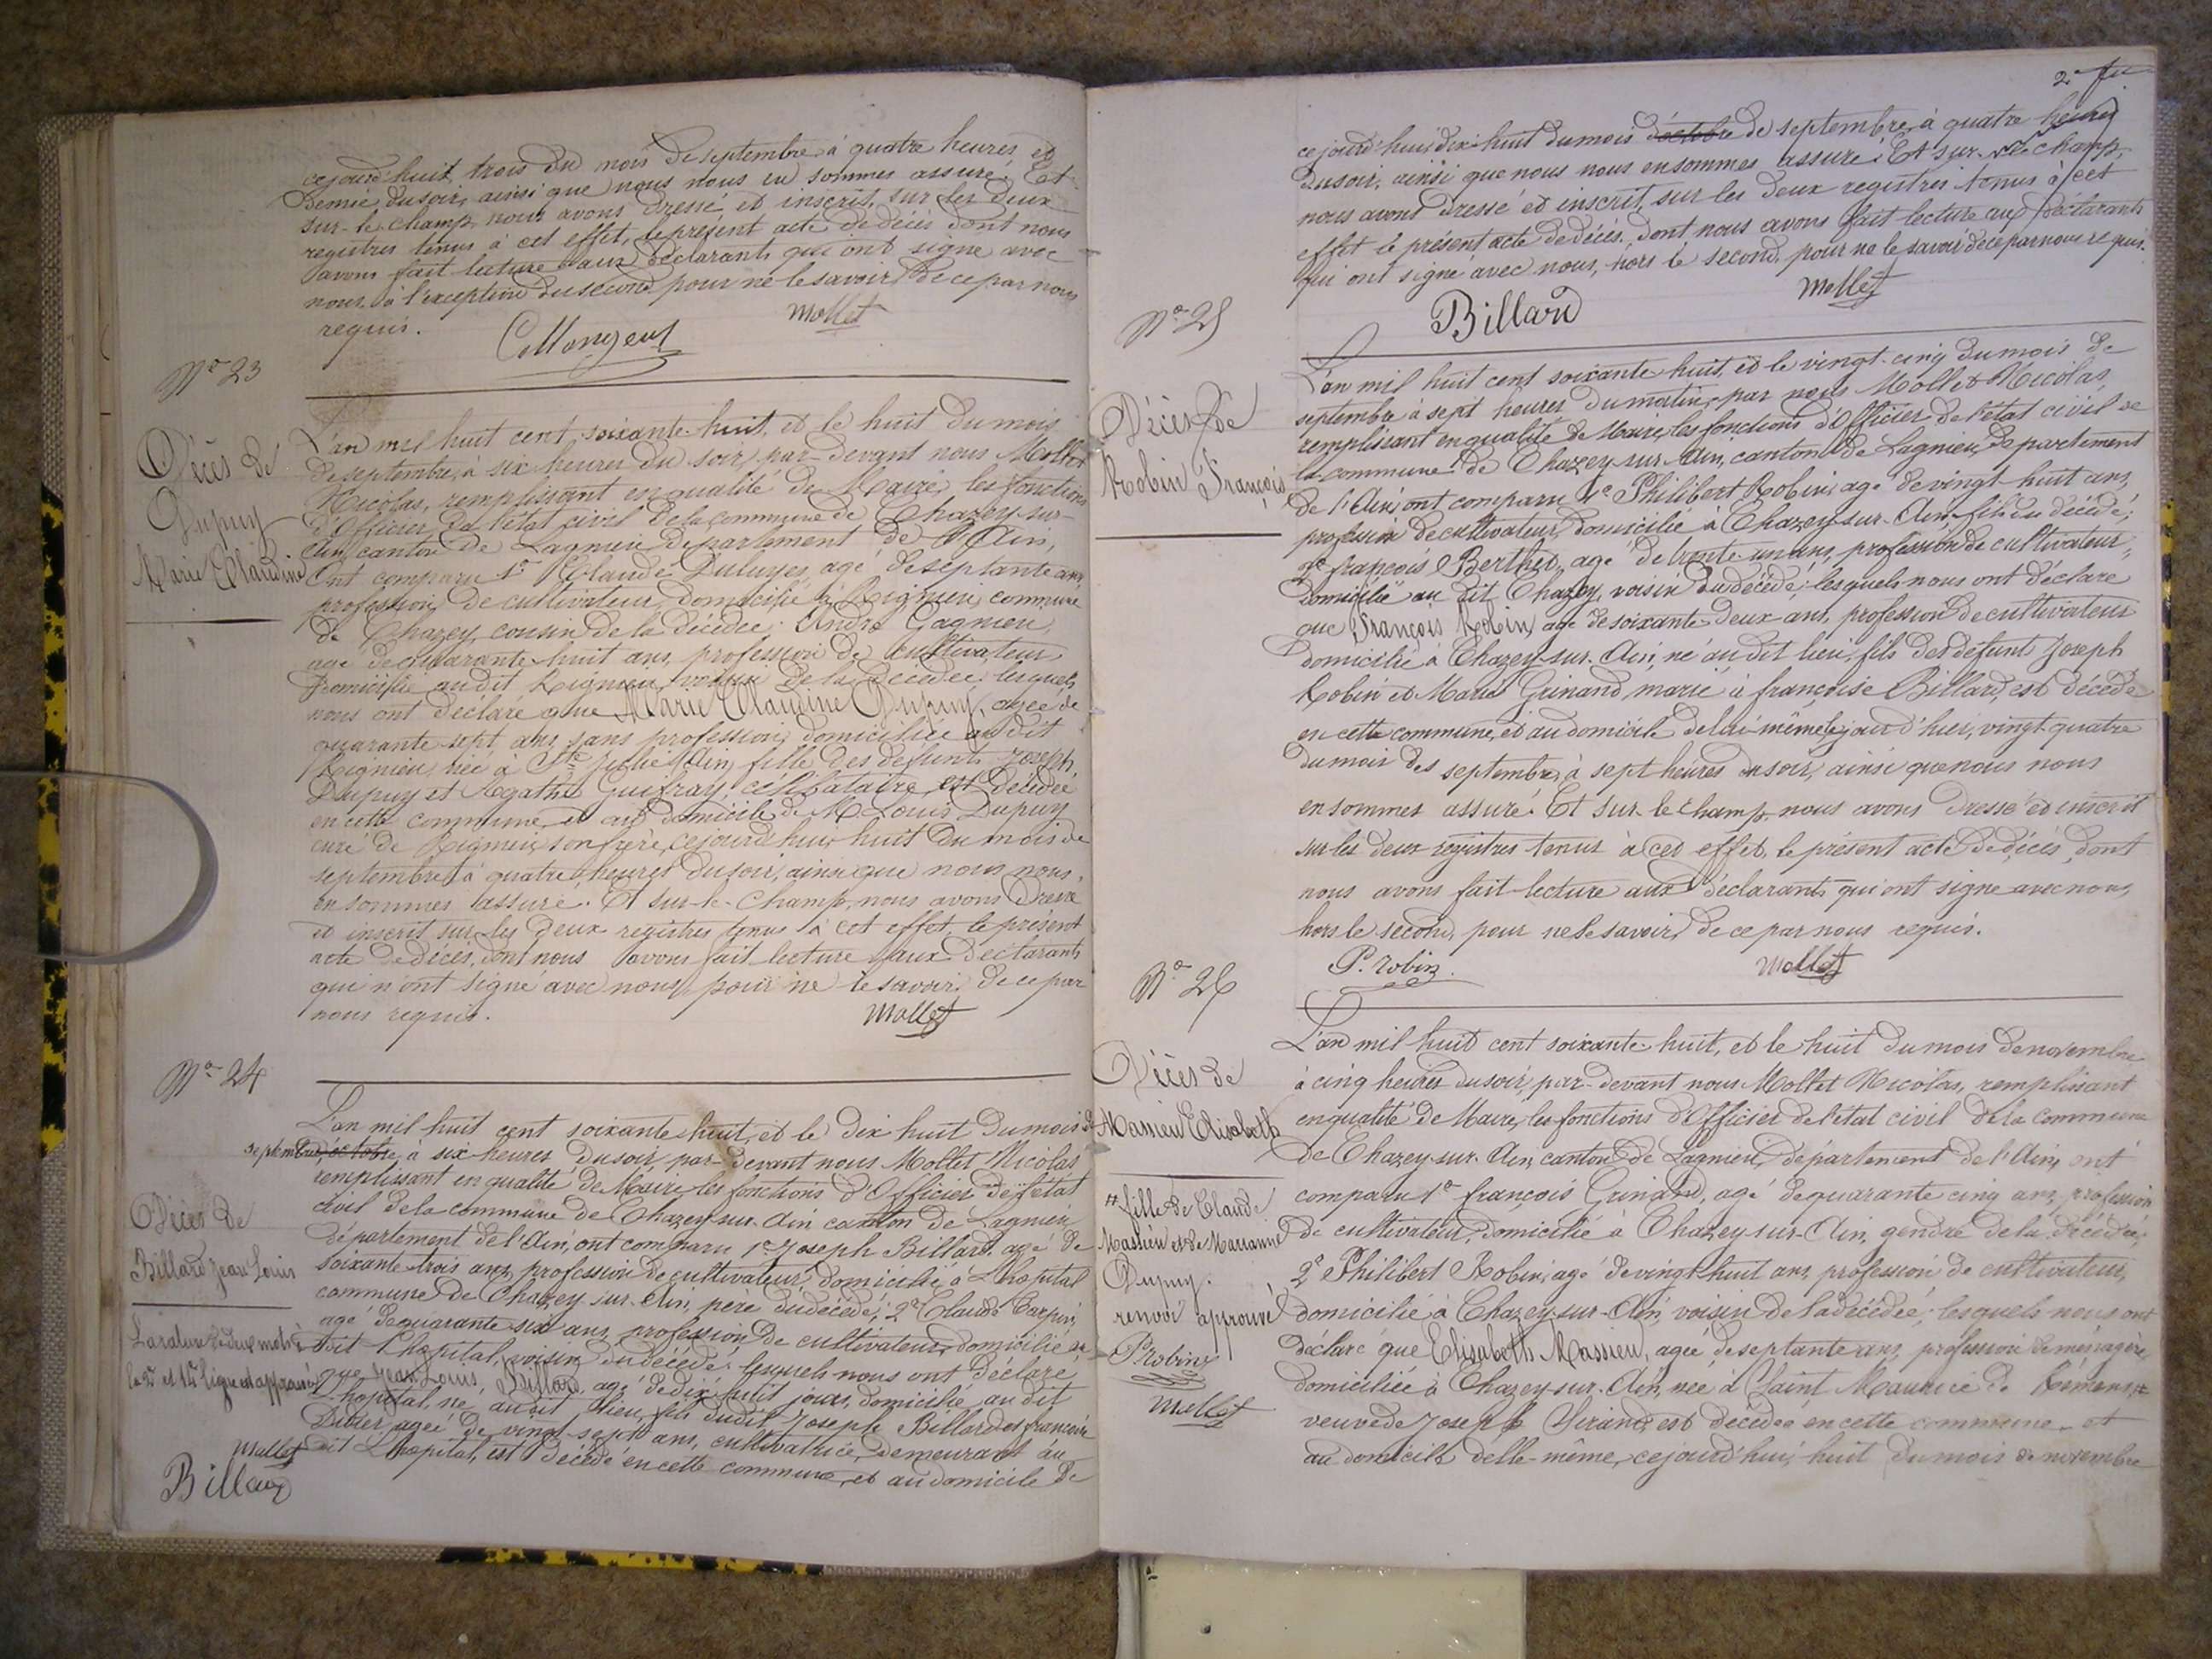 cejourd'huit trois du mois de septembre à quatre heures et
demie du soir, ainsi que nous nous en sommes assuré. Et
sur-le-champ nous avons dressé et inscrit, sur les deux
registres tenus à cet effet, le présent acte de décès dont nous
avons fait lecture aux déclarants qui ont signé avec
nous, à l'exception du second pour ne le savoir de ce par nous
requis.
Mollet
No 23
Décès de
Dupuy
Marie Claudine
L'an mil huit cent soixante-huit, et le huit du mois
de septembre, à six heures du soir, par-devant nous Mollet
Nicolas, remplissant en qualité de Maire, les fonctions
d'Officier de l'état civil de la commune de Chazey-sur-
Ain, canton de Lagnieu département de l'Ain,
Ont comparu 1º Claude Duluyes, agé de septante ans,
profession de cultivateur, domicilié à Rignieu, commune
de Chazey, cousin de la décédée; André Gagnieu,
agé de quarante-huit ans, profession de cultivateur
domicilié audit Rignieu, voisin de la décédée; lesquels
nous ont déclaré que Marie Claudine Dupuy, agée de
quarante-sept ans, sans profession, domiciliée au dit
Rignieu, née à Ste Julie (Ain) fille des défunts Joseph
Dupuy et Agathe Guifray, célibataire, est décédée
en cette commune, et au domicile de M. Louis Dupuy
curé de Rignieu, son frère, cejourd'hui huit du mois de
septembre, à quatre heures du soir, ainsi que nous nous
en sommes assuré. Et sur-le-champ, nous avons dressé
et inscrit sur les deux registres tenus à cet effet, le présent
acte de décès, dont nous avons fait lecture aux déclarants
qui n'ont signé avec nous, pour ne le savoir, de ce par
nous requis.
Mollet
No 24
Décès de
Billard Jean Louis
L'an mil huit cent soixante huit, et le dix huit du mois de
septembre, octobre, à six heures du soir, par-devant nous Mollet Nicolas
remplissant en qualité de Maire, les fonctions d'Officier de l'état
civil de la commune de Chazey-sur-Ain canton de Lagnieu
département de l'Ain, ont comparu 1º Joseph Billard, agé de
soixante-trois ans, profession de cultivateur, domicilié à L'hopital
commune de Chazey-sur-Ain, père du décédé; 2º Claude Carpin,
agé de quarante six ans, profession de cultivateur, domicilié au
dit L'hopital, voisin du décédé; lesquels nous ont déclaré
que Jean Louis Billard, agé de dix-huit jours, domicilié au dit
L'hopital, né au dit lieu, fils dudit Joseph Billard et françoise
Didier, agée de vingt-sept ans, cultivatrice, demeurant au
dit L'hopital, est décédé en cette commune, et au domicile de
La rature de deux mots à
la 2e et 14e ligne est approuvée
Mollet
Billard
2e fe
cejourd'hui dix-huit du mois d'octobre de septembre, à quatre heures
du soir, ainsi que nous nous en sommes assuré. Et sur-le-champ,
nous avons dressé et inscrit, sur les deux registres tenus à cet
effet le présent acte de décès, dont nous avons fait lecture aux déclarants
qui ont signé avec nous, hors le second, pour ne le savoir de ce par nous requis.
Billard Mollet
No 25
Décès de
Robin François
L'an mil huit cent soixante-huit, et le vingt-cinq du mois de
septembre à sept heures du matin, par nous Mollet Nicolas,
remplissant en qualité de Maire, les fonctions d'Officier de l'état civil de
la commune de Chazey-sur-Ain, canton de Lagnieu, département
de l'Ain, ont comparu 1º Philibert Robin, agé de vingt-huit ans,
profession de cultivateur, domicilié à Chazey-sur-Ain, fils du décédé;
2º françois Berthet, agé de trente-un ans, profession de cultivateur,
domicilié au dit Chazey, voisin du décédé; lesquels nous ont déclaré
que François Robin, agé de soixante-deux ans, profession de cultivateur
domicilié à Chazey-sur-Ain, né au dit lieu, fils des défunt Joseph
Robin et Marie Grinand, marié à françoise Billard, est décédé
en cette commune, et au domicile de lui-même, le jour d'hier, vingt-quatre
du mois des septembre, à sept heures du soir, ainsi que nous nous
en sommes assuré. Et sur-le-champ, nous avons dressé et inscrit
sur les deux registres tenus à cet effet, le présent acte de décès, dont
nous avons fait lecture aux déclarants qui ont signé avec nous,
hors le second, pour ne le savoir, de ce par nous requis.
P. Robin Mollet
No 26
Décès de
Massieu Elisabeth
L'an mil huit cent soixante-huit, et le huit du mois de novembre
à cinq heures du soir, par-devant nous Mollet Nicolas, remplissant
en qualité de Maire, les fonctions d'Officier de l'état civil de la commune
de Chazey-sur-Ain, canton de Lagnieu, département de l'Ain, ont
comparu 1º françois Grinand, agé de quarante cinq ans, profession
de cultivateur, domicilié à Chazey-sur-Ain, gendre de la décédée;
2º Philibert Robin, agé de vingt-huit ans, profession de cultivateur,
domicilié à Chazey-sur-Ain, voisin de la décédée; lesquels nous ont
déclaré que Elisabeth Massieu, agée de septante ans, profession de ménagère,
domiciliée à Chazey-sur-Ain, née à Saint Maurice de Rémens #
veuve de Joseph est décédée en cette commune et
au domicile d'elle-même, cejourd'hui, huit du mois de novembre
# fille de Claude
Massieu et de Marianne
Dupuy.
renvoi approuvé
P. Robin
Mollet